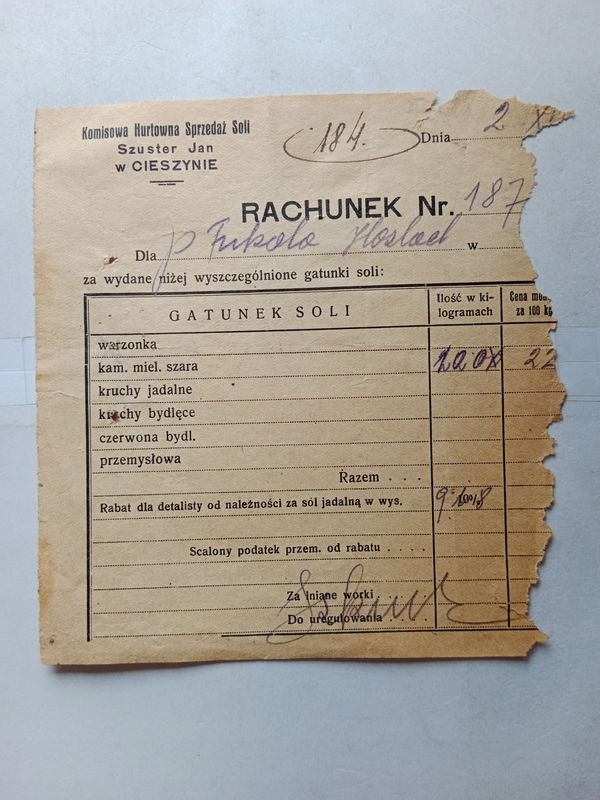 Komisowa Hurtowna Sprzedaż Soli
Szuster Jan
w CIESZYNIE
184.
Dnia 2 XI
RACHUNEK Nr. 187
Dla p Fukala w
za wydane niżej wyszczególnione gatunki soli:
GATUNEK SOLI Ilość w ki-logramach Cena za 100 kg
warzonka
kam. miel. szara 200 22
kruchy jadalne
kruchy bydlęce
czerwona bydl.
przemysłowa
Razem . . .
Rabat dla detalisty od należności za sól jadalną w wys.
Scalony podatek przem. od rabatu . . . .
Za lniane worki . . . .
Do uregulowania . . . .